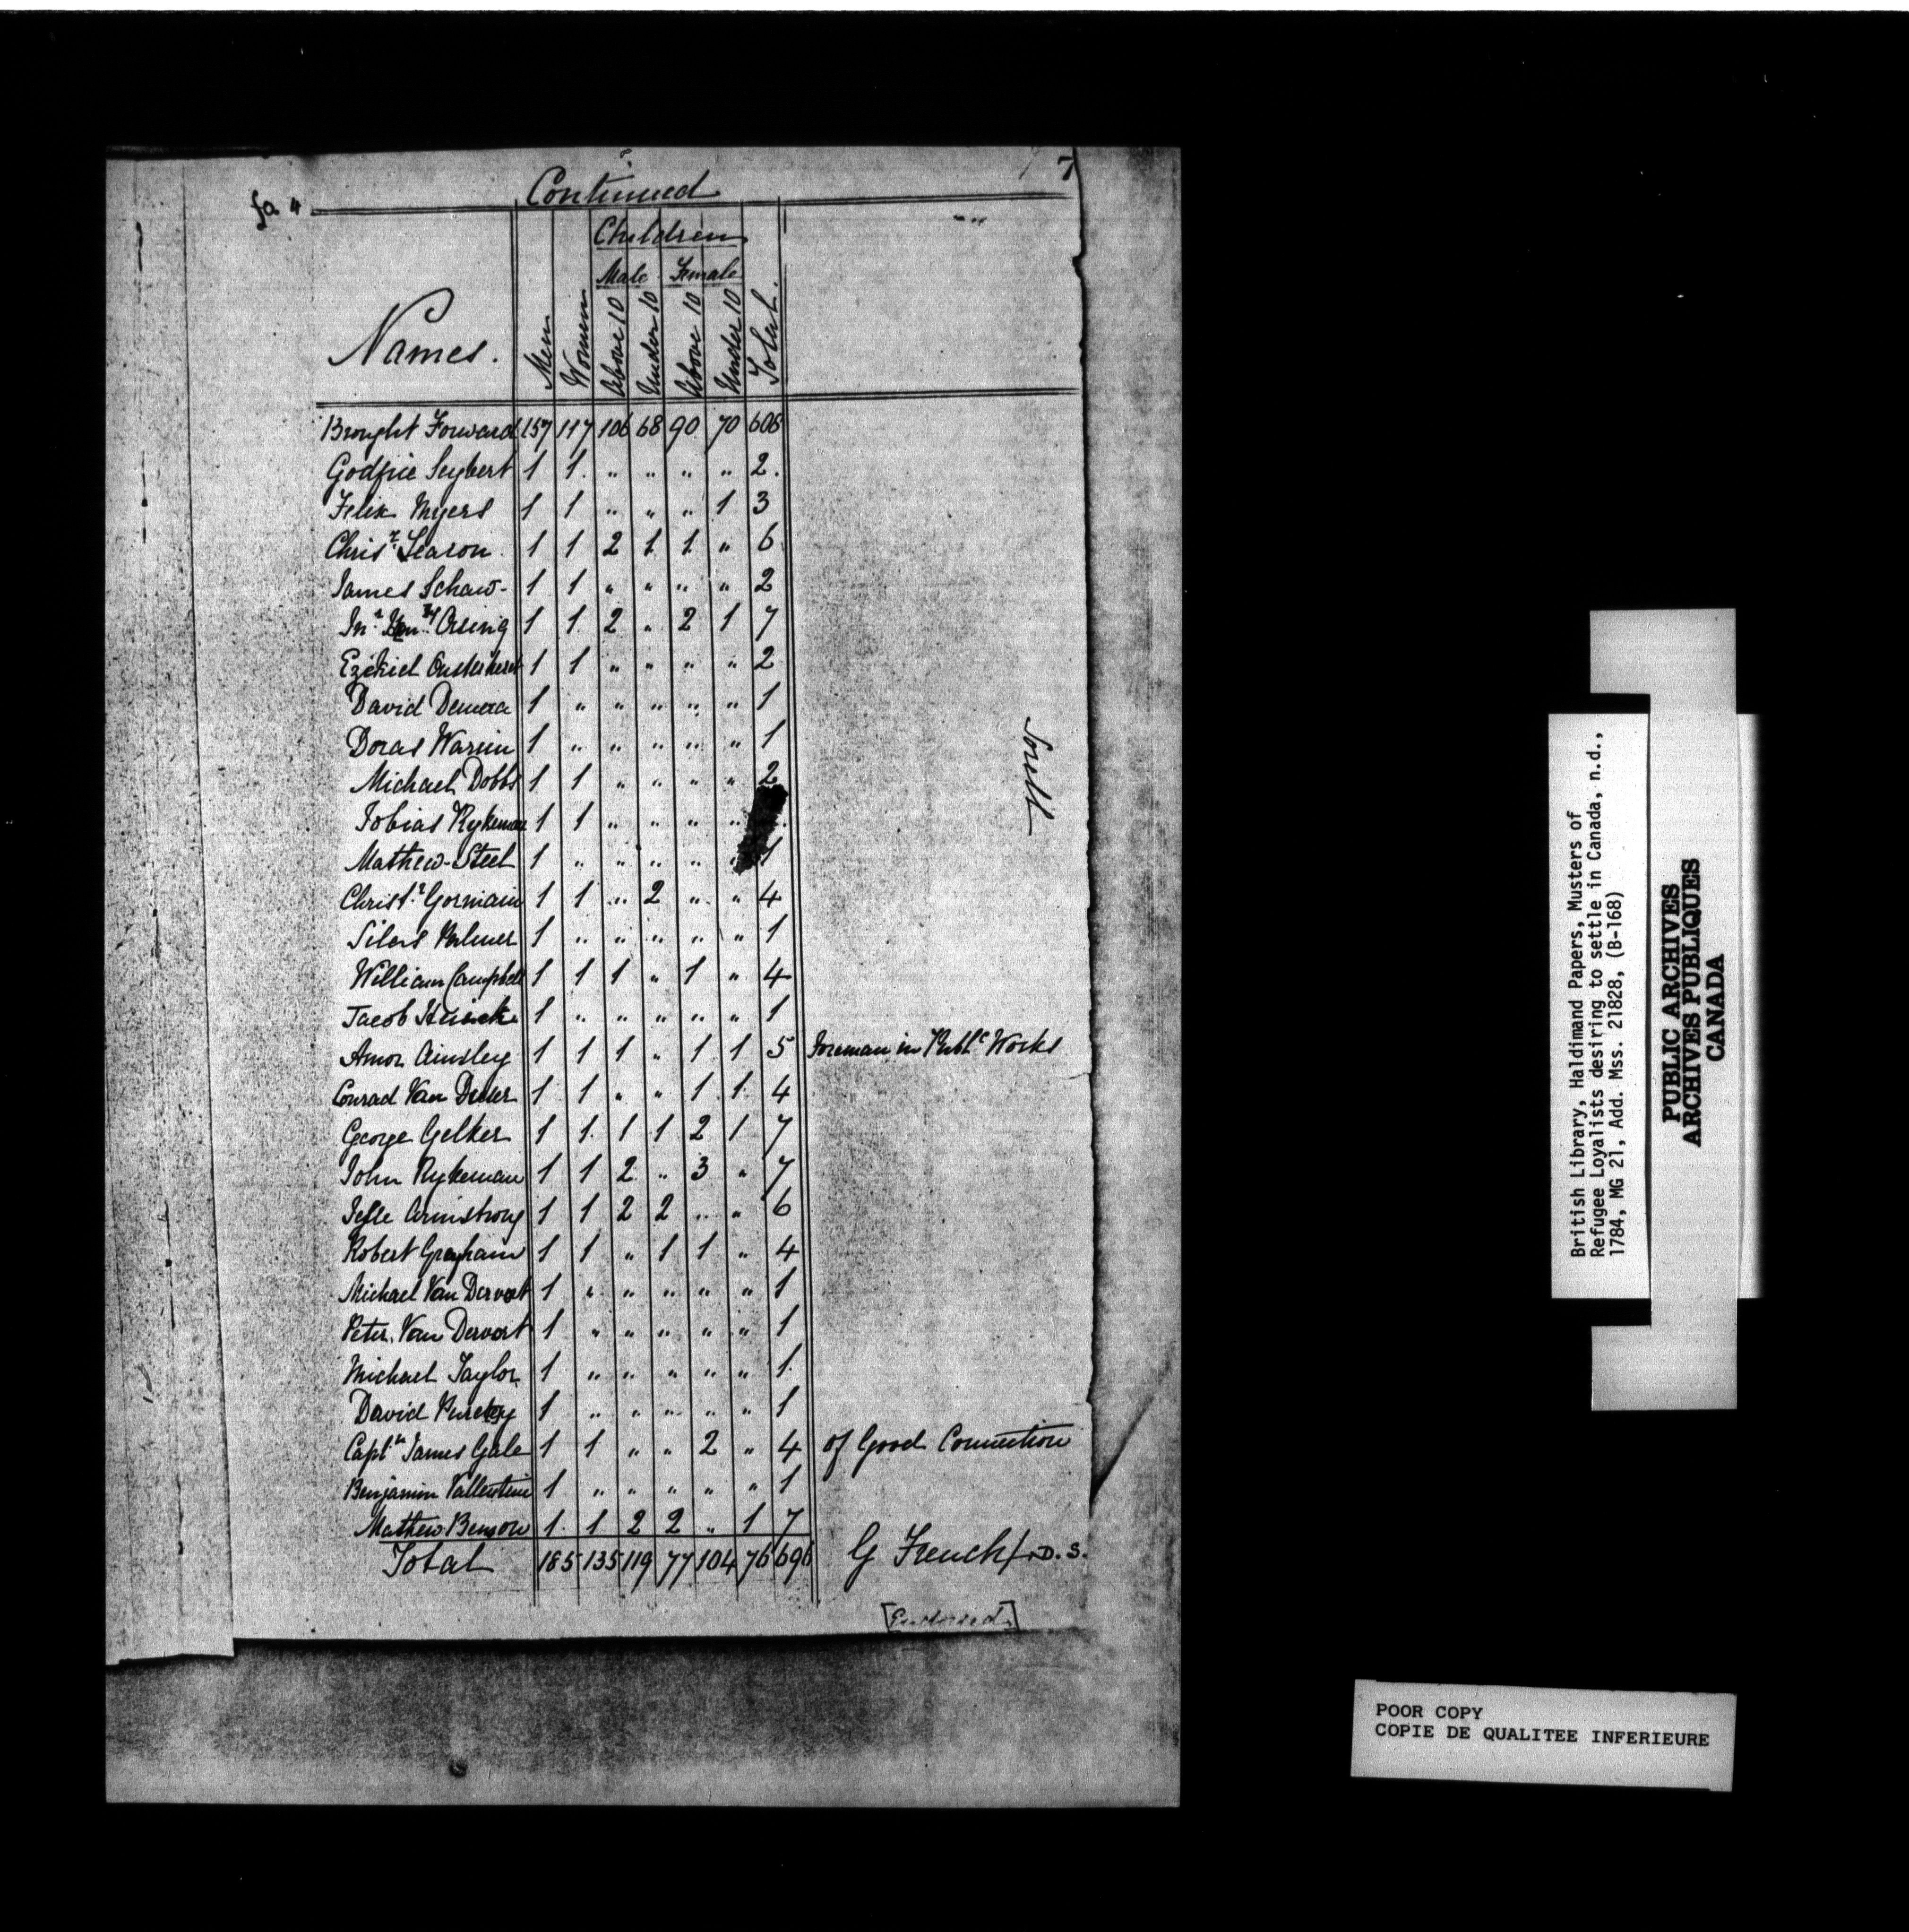 7
fa "
Continued
Children
Male Female
Names. Men Women Above 10 Under 10 Above 10 Under 10 Total.
Brought Forward 157 117 106 68 90 70 608
Godfrie Seybert 1 1 " " " " 2.
Felix Myers 1 1 " " " 1 3
Chrisr. Season 1 1 2 1 1 " 6
James Schaw- 1 1 " " " " 2
Jn. Heny. Asing 1 1 2 " 2 1 7
Ezekiel 1 1 " " " " 2
David 1 " " " " " 1
Doras Warrin 1 " " " " " 1
Michael Dobbs 1 1 " " " " 2
Tobias Rykeman 1 1 " " " "
Mathew Steel 1 " " " " " 1
Christr. Gormain 1 1 " 2 " " 4
Silas Palmer 1 " " " " " 1
William Campbell 1 1 1 " 1 " 4
Jacob 1 " " " " " 1
Amos Ainsley 1 1 1 " 1 1 5 Foreman in Publc Works
Conrad Van 1 1 " " 1 1 4
George Gelker 1 1 1 1 2 1 7
John Rykeman 1 1 2 " 3 " 7
Jesse Armstrong 1 1 2 2 " " 6
Robert Graham 1 1 " 1 1 " 4
Michael Van Dervort 1 " " " " " 1
Peter Van Dervort 1 " " " " " 1
Michael Taylor 1 " " " " " 1
David 1 " " " " " 1
Captn James Gale 1 1 " " 2 " 4 of Good Connection
Benjamin Vallentine 1 " " " " " 1
Mathew Benson 1 1 2 2 " 1 7
Total 185 135 119 77 104 76 696
G French D. S.
[Endorsed]
British Library, Haldimand Papers, Musters of
Refugee Loyalists desiring to settle in Canada, n.d.,
1784, MG 21, Add. Mss. 21828, (B-168)
PUBLIC ARCHIVES
ARCHIVES PUBLIQUES
CANADA
POOR COPY
COPIE DE QUALITEE INFERIEURE